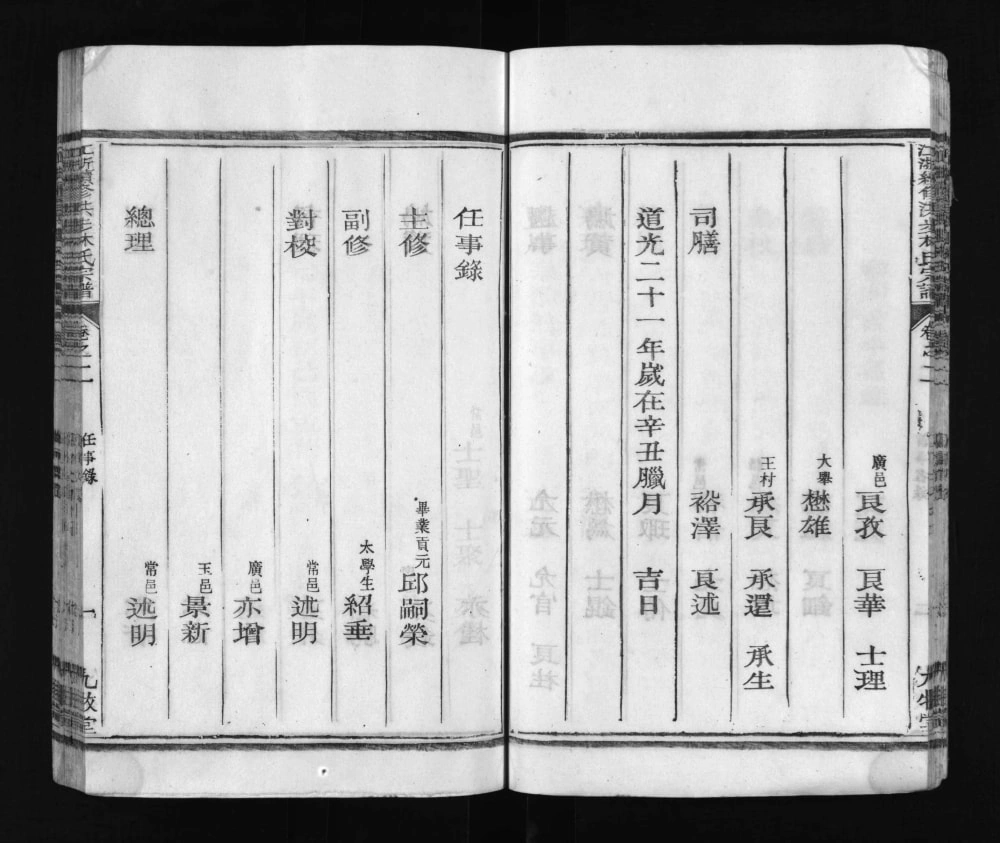 廣邑 良孜 良華 士理
大舉 懋雄
王村 承良 承還 承生
司膳 裕澤 良述
道光二十一年歲在辛丑臘月 吉日
江浙續修洪步林氏宗譜 卷之二
任事錄
主修 畢業貢元 邱嗣榮
副修 太學生 紹垂
對校 常邑 述明
廣邑 亦增
玉邑 景新
總理 常邑 述明
江浙續修洪步林氏宗譜 卷之二 任事錄 一 九牧堂